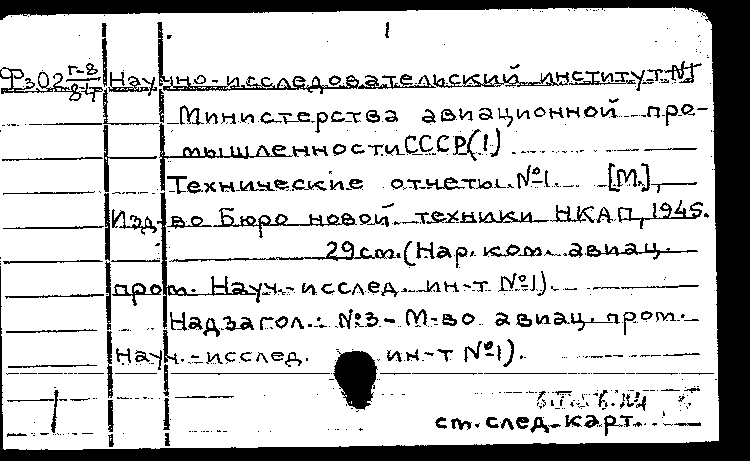 1
Фз02 г-8/84 Научно-исследовательский институт №1
Министерства авиационной про-
мышленности СССР(1)
Технические отчеты. №1. [М.],
Изд-во Бюро новой техники НКАП, 1945.
29см. (Нар. ком. авиац.
пром. Науч.-исслед. ин-т №1).
Надзагол.: №3 - М-во авиац. пром.
Науч.-исслед. ин-т №1).
1
см. след. карт.